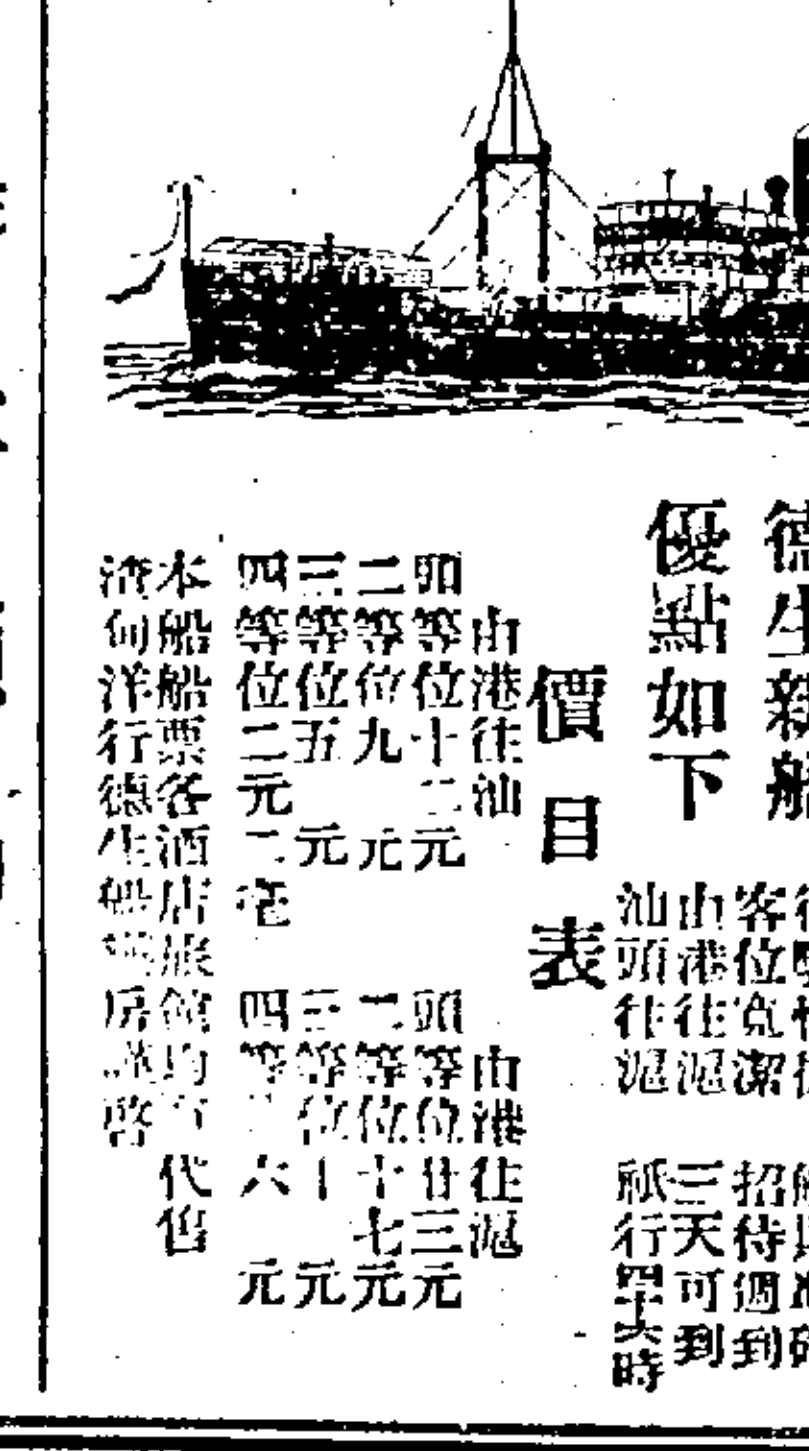 德生新船
優點如下
客位寬潔 招待週到
由港往滬 三天可到
汕頭往滬 祇行四十八時
價目表
由港往汕
頭等位十二元
二等位九元
三等位五元
四等位二元二毫
由港往滬
頭等位廿三元
二等位十七元
三等位十元
四等位六元
本船船票客酒店旅館均有代售
渣甸洋行德生船票房謹啓